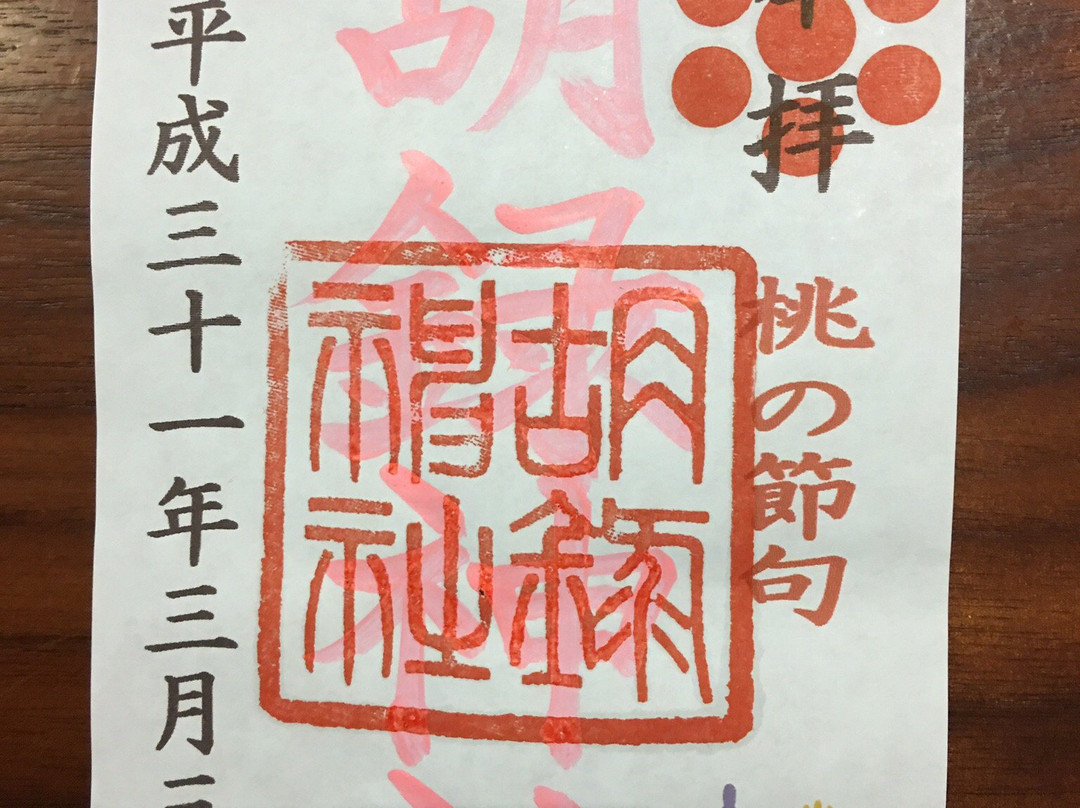 拝
桃の節句
胡録神
胡録
神社
平成三十一年三月三